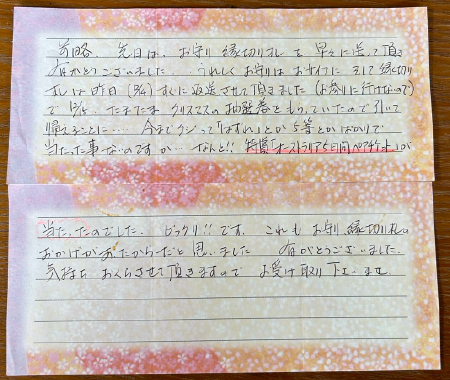 前略、先日は、お守り縁切り札を早々に送って頂き
有がとうございました... うれしくお守りはおサイフに そして縁切り
札は昨日(12/4)すぐに返送させて頂きました(お参りに行けないので)
で12/5. たまたま クリスマスの抽選券をもっていたので引いて
帰ることに... 今までクジって「はずれ」とか5等とかばかりで
当たった事ないのですが... なんと!! 特賞「オーストラリア5日間ペアチケット」が
当たったのでした. ビックリ!!です. これもお守り縁切り札の
おかげがあったからだと思いました 有がとうございました.
気持ちおくらさせて頂きますので お受け取り下さいませ